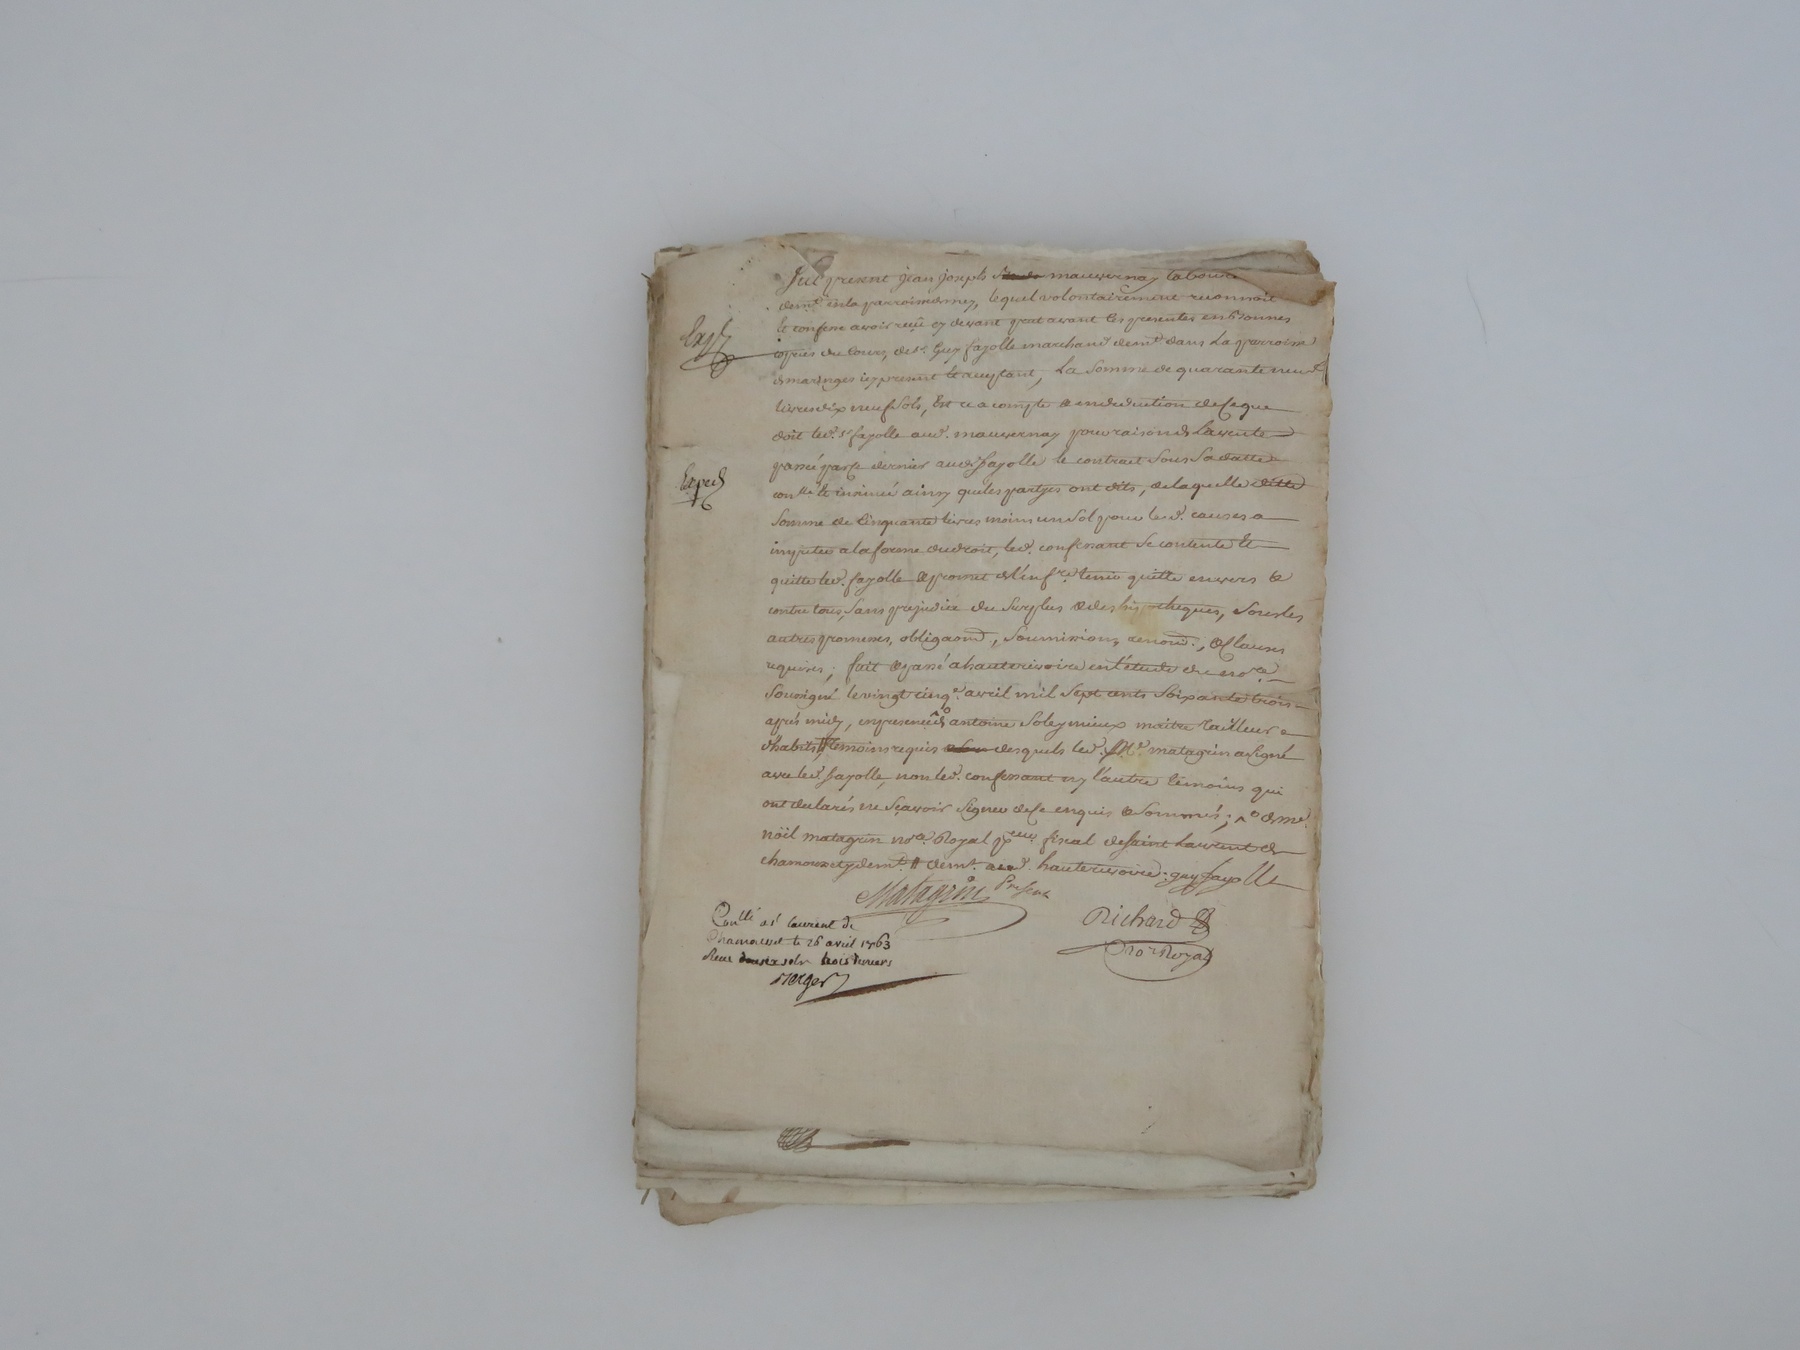 fut present jean joseph mauvernay labour
demt. en la parroisse lequel volontairement reconnoit
et confesse avoir reçû cy devant et avant les presentes en bonnes
espèces du cours, de sr. Guy fayolle marchand demt. dans la parroisse
de maringes icy present et acceptant, La somme de quarante neuf
livres dix neuf sols, Et ce a compte & en deduction de ce que
doit led. sr. fayolle aud. mauvernay pour raison de la vente
passé par ce dernier aud. fayolle le contract sous sa datte
conllé et insinué ainsy que les partyes ont dits, de laquelle ditte
somme de cinquante livres moins un sol pour lesd. causes a
imputer a la forme du droit, led. confessant se contente et
quitte led. fayolle & promet de l'en fre. tenir quitte envers &
contre tous, sans prejudice du surplus & des hipotheques, sous les
autres promesses, obligaons., soumissions, renons., & clauses
requises; fait & passé a hauterivoire en l'étude du nore.
soussigné le vingt cinqe. avril mil sept cents soixante trois
après midy, en presence de antoine Soleymieux maitre tailleur
d'habits # temoins requis desquels led. Me. matagrin a signé
avec led. fayolle, non led. confessant ny l'autre témoins qui
ont declarés ne sçavoir signer de ce enquis & sommés; ^o & me.
nöil matagrin nore. Royal fiscal de saint Laurent de
chamousset y demt. # demt. aud. hauterivoire. guy fayolle
Matagrin Present
Richard
Nore Royal
Conllé a st laurent de
Chamousset le 26 avril 1763
Reçu sols trois deniers
Merger
Expé
Exped